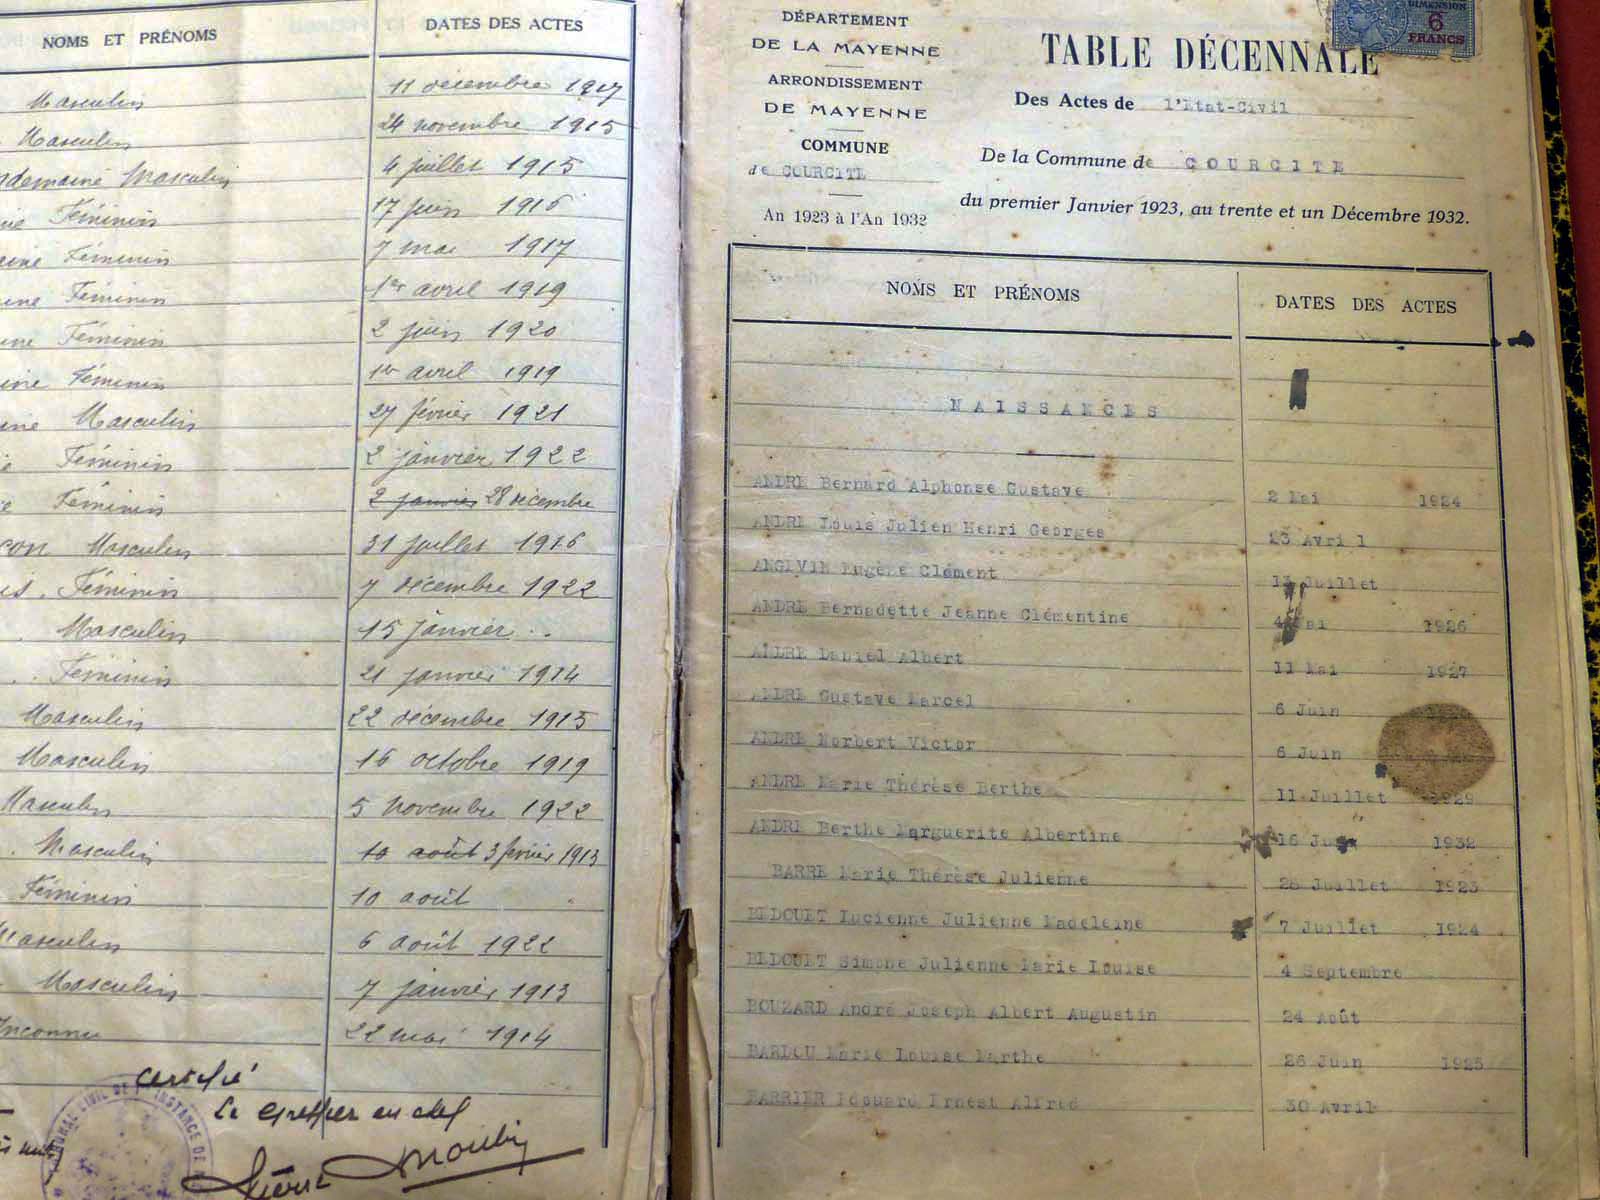 NOMS ET PRÉNOMS DATES DES ACTES
Masculin 11 décembre 1917
Masculin 24 novembre 1915
Masculin 4 juillet 1915
Féminin 17 juin 1916
Féminin 7 mai 1917
Féminin 1er avril 1919
Féminin 2 juin 1920
Féminin 1er avril 1919
Masculin 27 février 1921
Féminin 2 janvier 1922
Féminin 2 janvier 28 décembre
Masculin 31 juillet 1916
Féminin 7 décembre 1922
Masculin 15 janvier ..
Féminin 21 janvier 1914
Masculin 22 décembre 1915
Masculin 16 octobre 1919
Masculin 5 novembre 1922
Masculin 10 août 3 février 1913
Féminin 10 août
Masculin 6 août 1922
Masculin 7 janvier 1913
Inconnu 22 mai 1914
certifié
Le greffier en chef
DÉPARTEMENT
DE LA MAYENNE
ARRONDISSEMENT
DE MAYENNE
COMMUNE
de COURCITE
An 1923 à l'An 1932
DIMENSION
6
FRANCS
TABLE DÉCENNALE
Des Actes de l'Etat-Civil
De la Commune de COURCITE
du premier Janvier 1923, au trente et un Décembre 1932.
NOMS ET PRÉNOMS DATES DES ACTES
NAISSANCES
ANDRE Bernard Alphonse Gustave 2 Mai 1924
ANDRE Louis Julien Henri Georges 23 Avril
ANGIVIN Eugène Clément 13 Juillet
ANDRE Bernadette Jeanne Clémentine 4 Mai 1926
ANDRE Daniel Albert 11 Mai 1927
ANDRE Gustave Marcel 6 Juin
ANDRE Norbert Victor 6 Juin
ANDRE Marie Thérèse Berthe 11 Juillet 1929
ANDRE Berthe Marguerite Albertine 16 1932
BARRE Marie Thérèse Julienne 28 Juillet 1923
BEDOUET Lucienne Julienne Madeleine 7 Juillet 1924
BEDOUET Simone Julienne Marie Louise 4 Septembre
BOUZARD André Joseph Albert Augustin 24 Août
BARDOU Marie Louise Marthe 26 Juin 1925
BARRIER Edouard Ernest Alfred 30 Avril